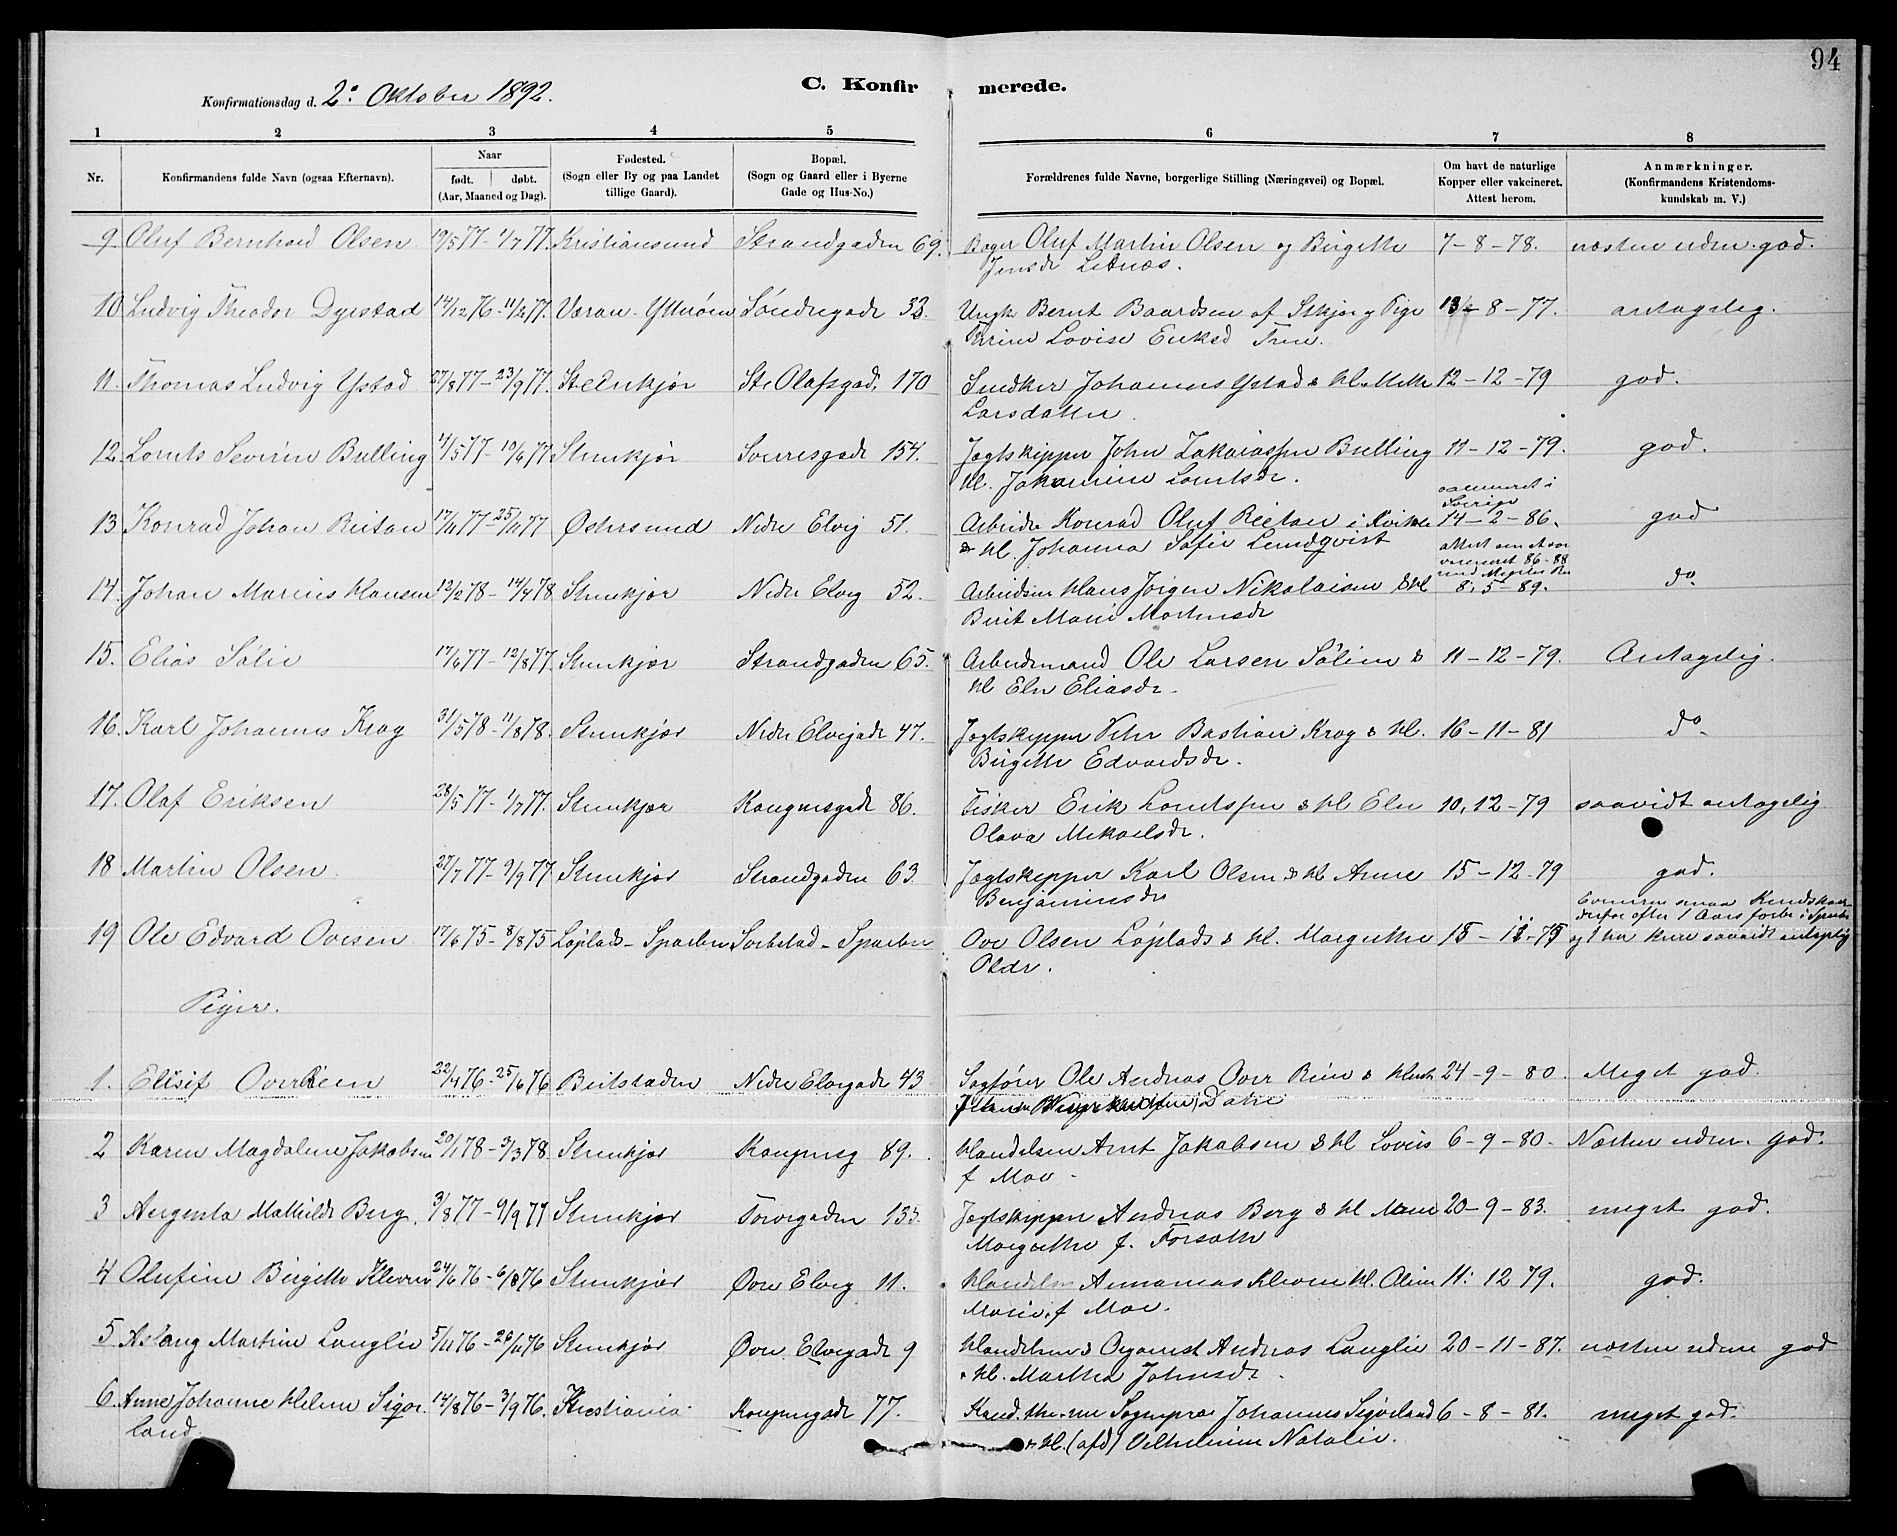 94
C. Konfirmerede.
Konfirmationsdag d. 2. Oktober 1892.
1 2 3 4 5 6 7 8
Nr. Konfirmandens fulde Navn (ogsaa Efternavn). Naar født. døbt. (Aar, Maaned og Dag). Fødested. (Sogn eller By og paa Landet tillige Gaard). Bopæl. (Sogn og Gaard eller i Byerne Gade og Hus-No.) Forældrenes fulde Navne, borgerlige Stilling (Næringsvei) og Bopæl. Om havt de naturlige Kopper eller vakcineret. Attest herom. Anmærkninger. (Konfirmandens Kristendomskundskab m. V.)
9. Oluf Bernhard Olsen 19/5 77 - 1/7 77. Kristiansund Strandgaden 69. Bager Oluf Martin Olsen og Birgitte 7-8-78. næsten uden. god.
Jensdr
10 Ludvig Theodor Dyrstad 14/12 76 - 11/2 77. Væran - Ytterøen Søndregade 33. Ungk Bernt Baardsen af Stkjær og Pige 13-8-77. antagelig.
Lovise
11. Thomas Ludvig Ystad 27/8 77 - 23/9 77. Steinkjær St. Olafsgad. 170 Snedker Johannes Ystad & hl. Mette 12-12-79 god.
Larsdatter
12. Lorents Severin Bulling 4/5 77 - 10/6 77 Stenkjær Sverresgade 154. Jagtskipper John Zakariassen Bulling 11-12-79. god.
hl. Johannine Lorntsdr.
13 Konrad Johan Reitan 17/11 77 - 25/11 77 Østersund Nedre Elvg 51. Arbeider Konrad Oluf Reitan i 14-2-86. god
& hl. Johanna Sofie Lundqvist
14. Johan Marius Hansen 12/2 78 - 14/4 78 Stenkjær Nedre Elvg 52. Arbeidsm Hans Jørgen Nikolaisen & hl 8-5-89. do
Berit Marie Mortensdr
15. Elias Sølie 17/6 77 - 12/8 77. Stenkjær Strandgaden 65. Arbeidsmand Ole Larsen Sølien & 11-12-79. Antagelig.
hl Elen Eliasdr.
16. Karl Johannes Krog 31/5 78 - 11/8 78. Stenkjær Nedre Elvegade 47. Jagtskipper Peter Bastian Krog & hl. 16-11-81 do
Birgitte Edvardsdr.
17. Olaf Eriksen 28/5 77 - 1/7 77. Stenkjær Kongensgade 86. Fisker Erik Lorntssen & hl Elen 10.12-79 saavidt antagelig
Olava Mikaelsdr.
18 Martin Olsen 27/7 77 - 9/9 77 Stenkjær Strandgaden 63. Jagtskipper Karl Olsen & hl Anne 15-12-79 god.
Benjaminsdr
19 Ole Edvard Ovesen 17/6 75 - 8/8 75 Løplads - Sparbu Sorbstad - Sparbu Ove Olsen Løplads & hl. Margrethe 15-11-75
Olsdr.
Piger.
1. Elisif Overrein 22/4 76 - 25/6 76 Beitstaden Nedre Elvegade 43 Sagfører Ole Andreas Over Rein & 24-9-80. Meget god.
2 Karen Magdalene Jakobsen 20/1 78 - 3/3 78. Stenkjær Kongensg 89. Handelsm Arnt Jakobsen & hl Lovise 6-9-80. Næsten uden. god.
f Moe
3 Augenta Mathilde Berg. 3/8 77 - 9/9 77 Stenkjær Torvegaden 133. Jagtskipper Andreas Berg & hl Anne 20-9-83. meget god.
Margrethe f. Forseth
4 Olufine Birgitte Klevn 24/6 76 - 6/8 76 Stenkjær Øvre Elvg 11. Ananias hl. Oline 11. 12 79. god.
Marie, f Moe.
5 Aslaug Martine Langlie 5/11 76 - 26/11 76 Stenkjær Øvre Elvegade 9 Handelsm & Organist Andreas Langlie 20-11-87. næsten uden god
& hl. Martha Johnsdr.
6. Anne Johanne Helene Sigve 14/8 76 - 3/9 76. Kristiania Kongensgade 77. Sognepræ Johannes Sigveland 6-8-81. meget god.
land & hl. (afd) Vilhelmine Natalie.